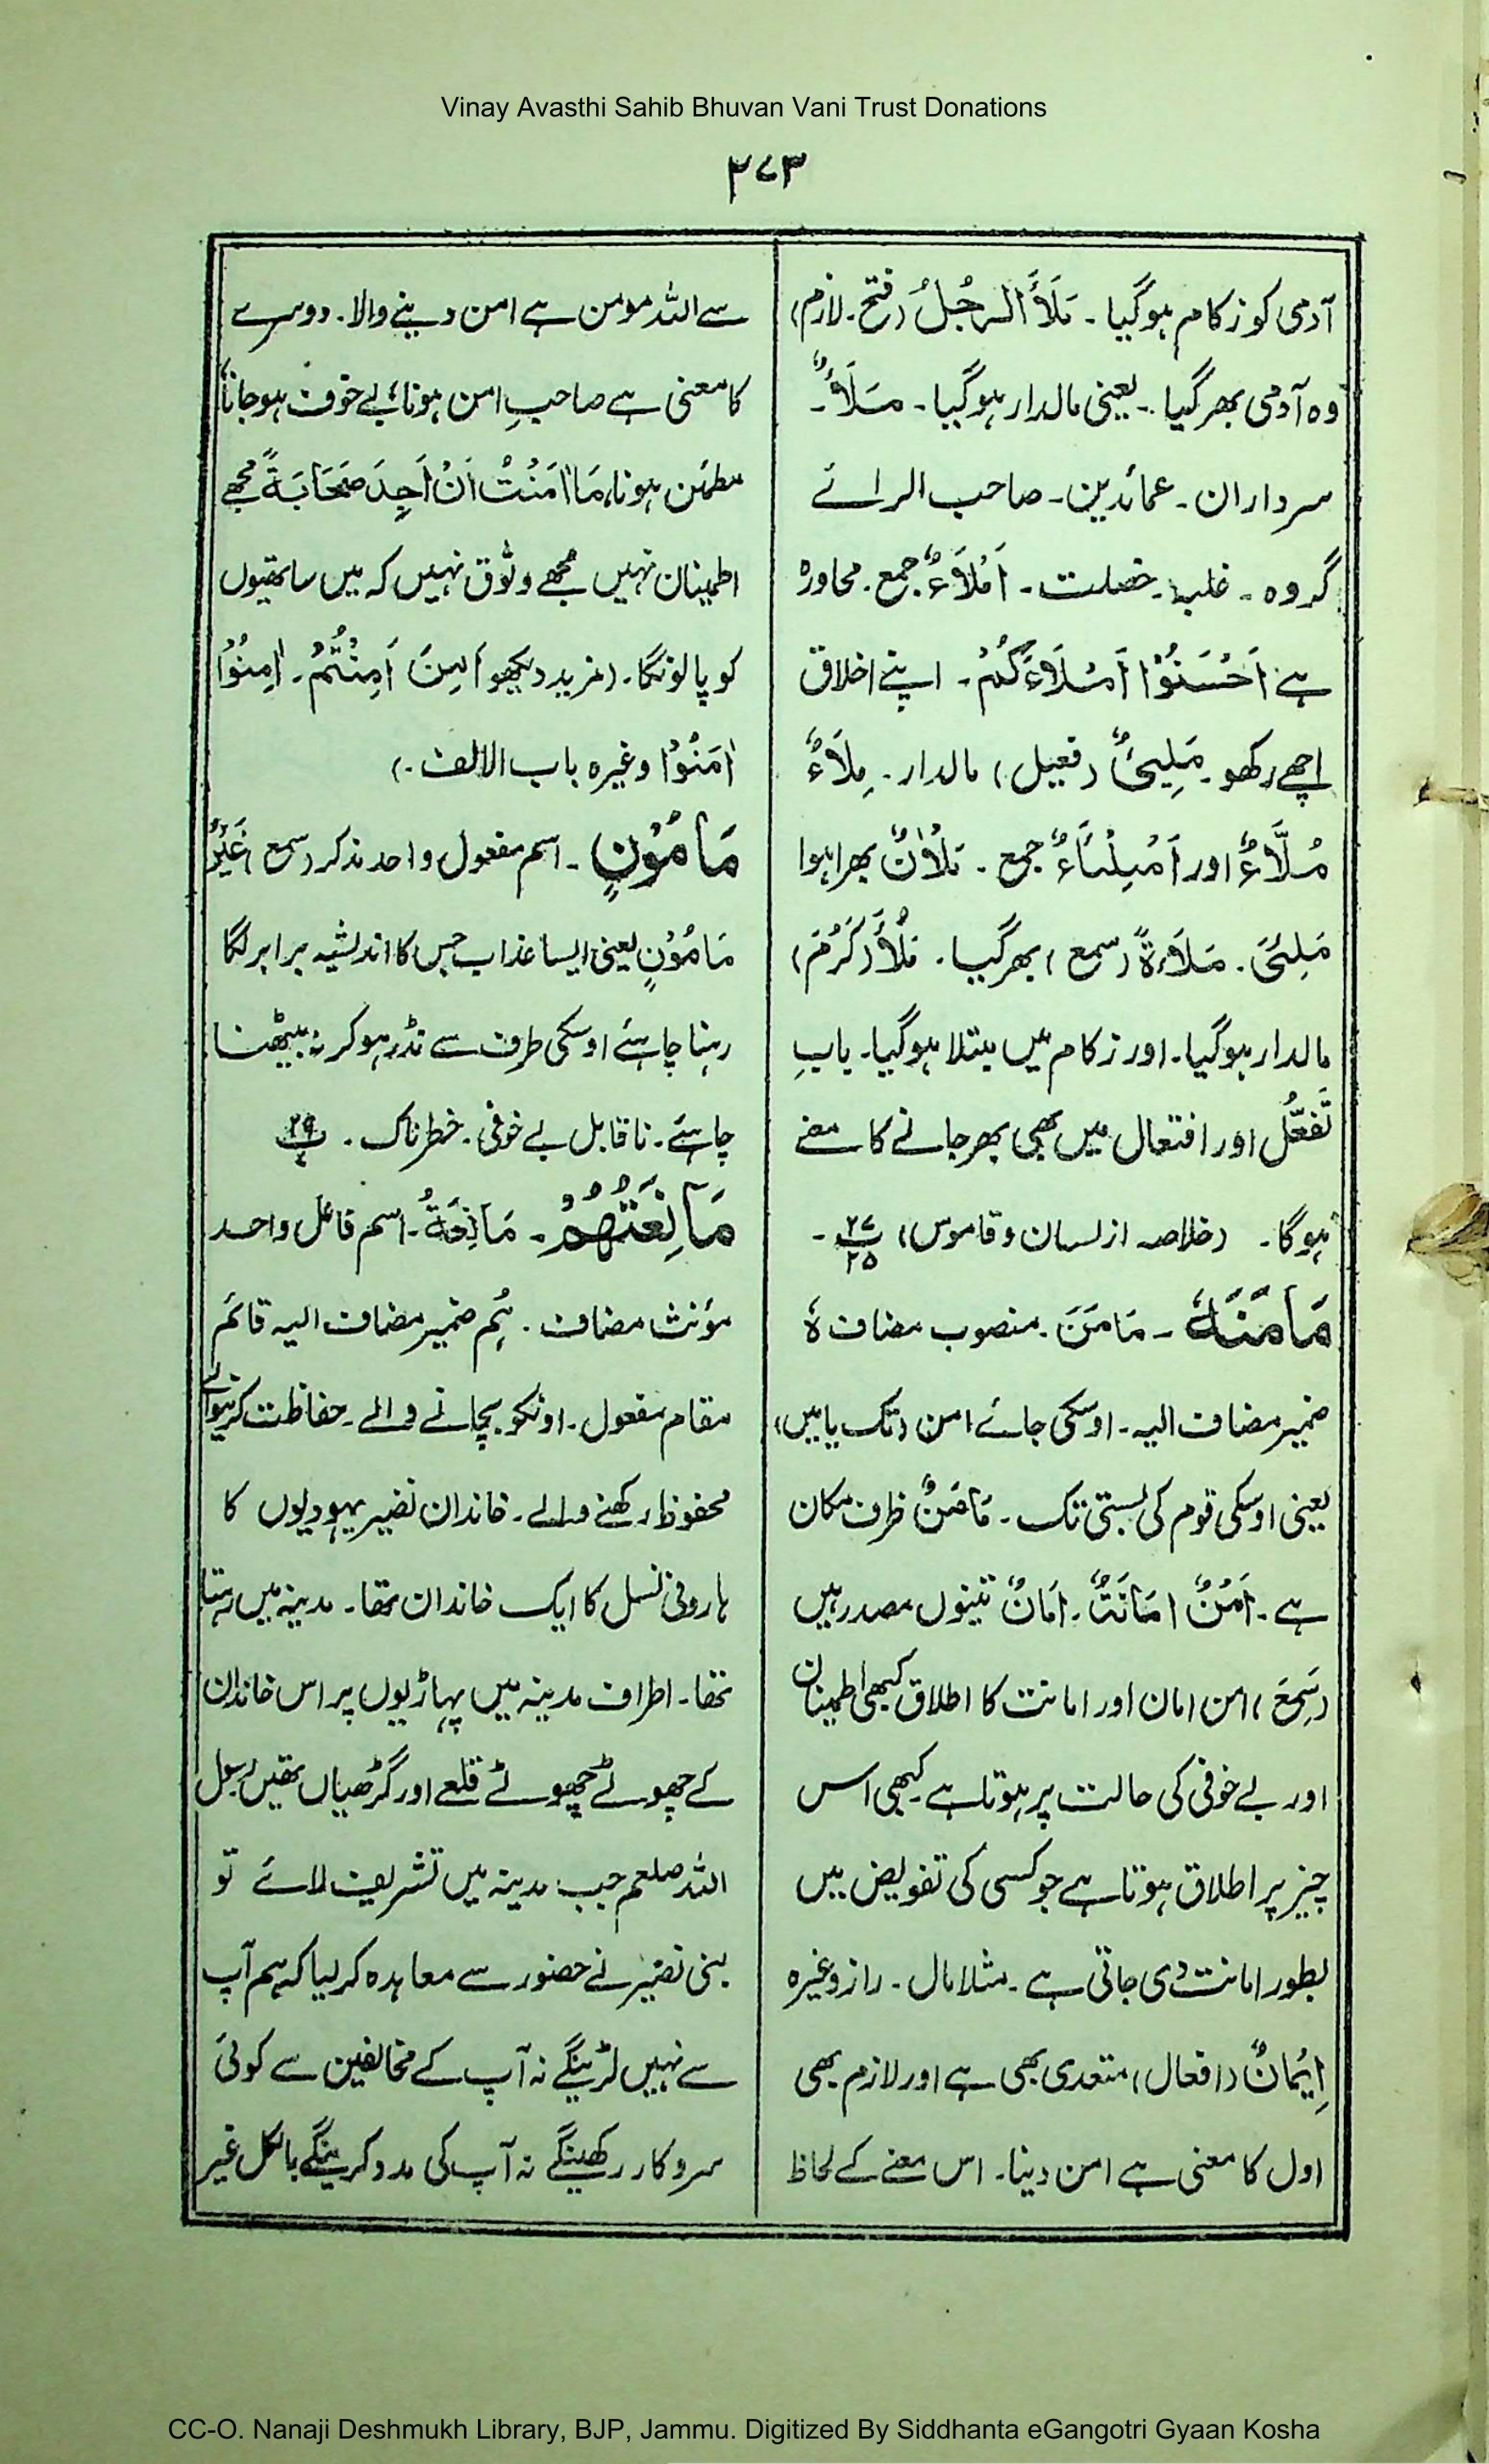 Vinay Avasthi Sahib Bhuvan Vani Trust Donations
۲۷۳
آدمی کو زکام ہوگیا۔ مَلَأَ الرَجُلُ (فتح۔ لازم)
وہ آدمی بھر گیا۔ یعنی مالدار ہوگیا۔ مَلَأٌ۔
سرداران۔ عمائدین۔ صاحب الرائے
گروہ۔ غلبہ۔ خصلت۔ اَمْلَاءٌ جمع۔ محاورہ
ہے اَحْسَنُوْا اَمْلَاءَكُمْ۔ اپنے اخلاق
اچھے رکھو۔ مَلِیْئٌ (فعیل) مالدار۔ مِلَاءٌ
مُلَّاءٌ اور اَمْلِئَاءُ جمع۔ مَلْاٰنٌ بھرا ہوا
مَلِئَی۔ مَلَاءَةً (سمع) بھر گیا۔ مَلُأَ (کَرُمَ)
مالدار ہوگیا۔ اور زکام میں مبتلا ہوگیا۔ بابِ
تَفَعُّل اور افتعال میں بھی بھر جانے کا معنے
ہوگا۔ (خلاصہ از لسان و قاموس) ۲۷/۲۵۔
مَامَنَهٗ۔ مَامَنَ۔ منصوب مضاف ہٗ
ضمیر مضاف الیہ۔ اوسکی جائے امن (تک یا میں)
یعنی اوسکی قوم کی بستی تک۔ مَامَنٌ ظرف مکان
ہے۔ اَمْنٌ اَمَانَتٌ۔ اَمَانٌ تینوں مصدر ہیں
(سَمِعَ) امن امان اور امانت کا اطلاق کبھی اطمینان
اور بے خوفی کی حالت پر ہوتا ہے۔ کبھی اس
چیز پر اطلاق ہوتا ہے جو کسی کی تفویض میں
بطور امانت دی جاتی ہے۔ مثلا مال۔ راز وغیرہ
اِیْمَانٌ (افعال) متعدی بھی ہے اور لازم بھی
اول کا معنی ہے امن دینا۔ اس معنے کے لحاظ
سے اللہ مومن ہے امن دینے والا۔ دوسرے
کا معنی ہے صاحبِ امن ہونا، بے خوف ہوجانا،
مطمئن ہونا، مَا اٰمَنْتُ اَنْ اَجِدَ صَحَابَةً مجھے
اطمینان نہیں مجھے وثوق نہیں کہ میں ساتھیوں
کو پا لونگا۔ (مزید دیکھو اَمِنَ اَمِنْتُمْ۔ اٰمِنُوْا
اٰمَنُوْا وغیرہ باب الالف۔)
مَامُوْنٍ۔ اسم مفعول واحد مذکر (سمع) غَيْرُ
مَامُوْنٍ یعنی ایسا عذاب جس کا اندیشہ برابر لگا
رہنا چاہئے اوسکی طرف سے نڈر ہو کر نہ بیٹھنا
چاہئے۔ ناقابل بے خوفی۔ خطرناک۔ ۲۹/۷
مَانِعَتُهُمْ۔ مَانِعَةُ۔ اسم فاعل واحد
مؤنث مضاف۔ ہُم ضمیر مضاف الیہ قائم
مقام مفعول۔ اونکو بچانے والے۔ حفاظت کرنیوالے
محفوظ رکھنے والے۔ خاندان نضیر یہودیوں کا
ہارونی نسل کا ایک خاندان تھا۔ مدینہ میں رہتا
تھا۔ اطراف مدینہ میں پہاڑیوں پر اس خاندان
کے چھوٹے چھوٹے قلعے اور گڑھیاں تھیں رسول
اللہ صلعم جب مدینہ میں تشریف لائے تو
بنی نضیر نے حضور سے معاہدہ کر لیا کہ ہم آپ
سے نہیں لڑینگے نہ آپ کے مخالفین سے کوئی
سروکار رکھینگے نہ آپ کی مدد کرینگے بالکل غیر
CC-O. Nanaji Deshmukh Library, BJP, Jammu. Digitized By Siddhanta eGangotri Gyaan Kosha